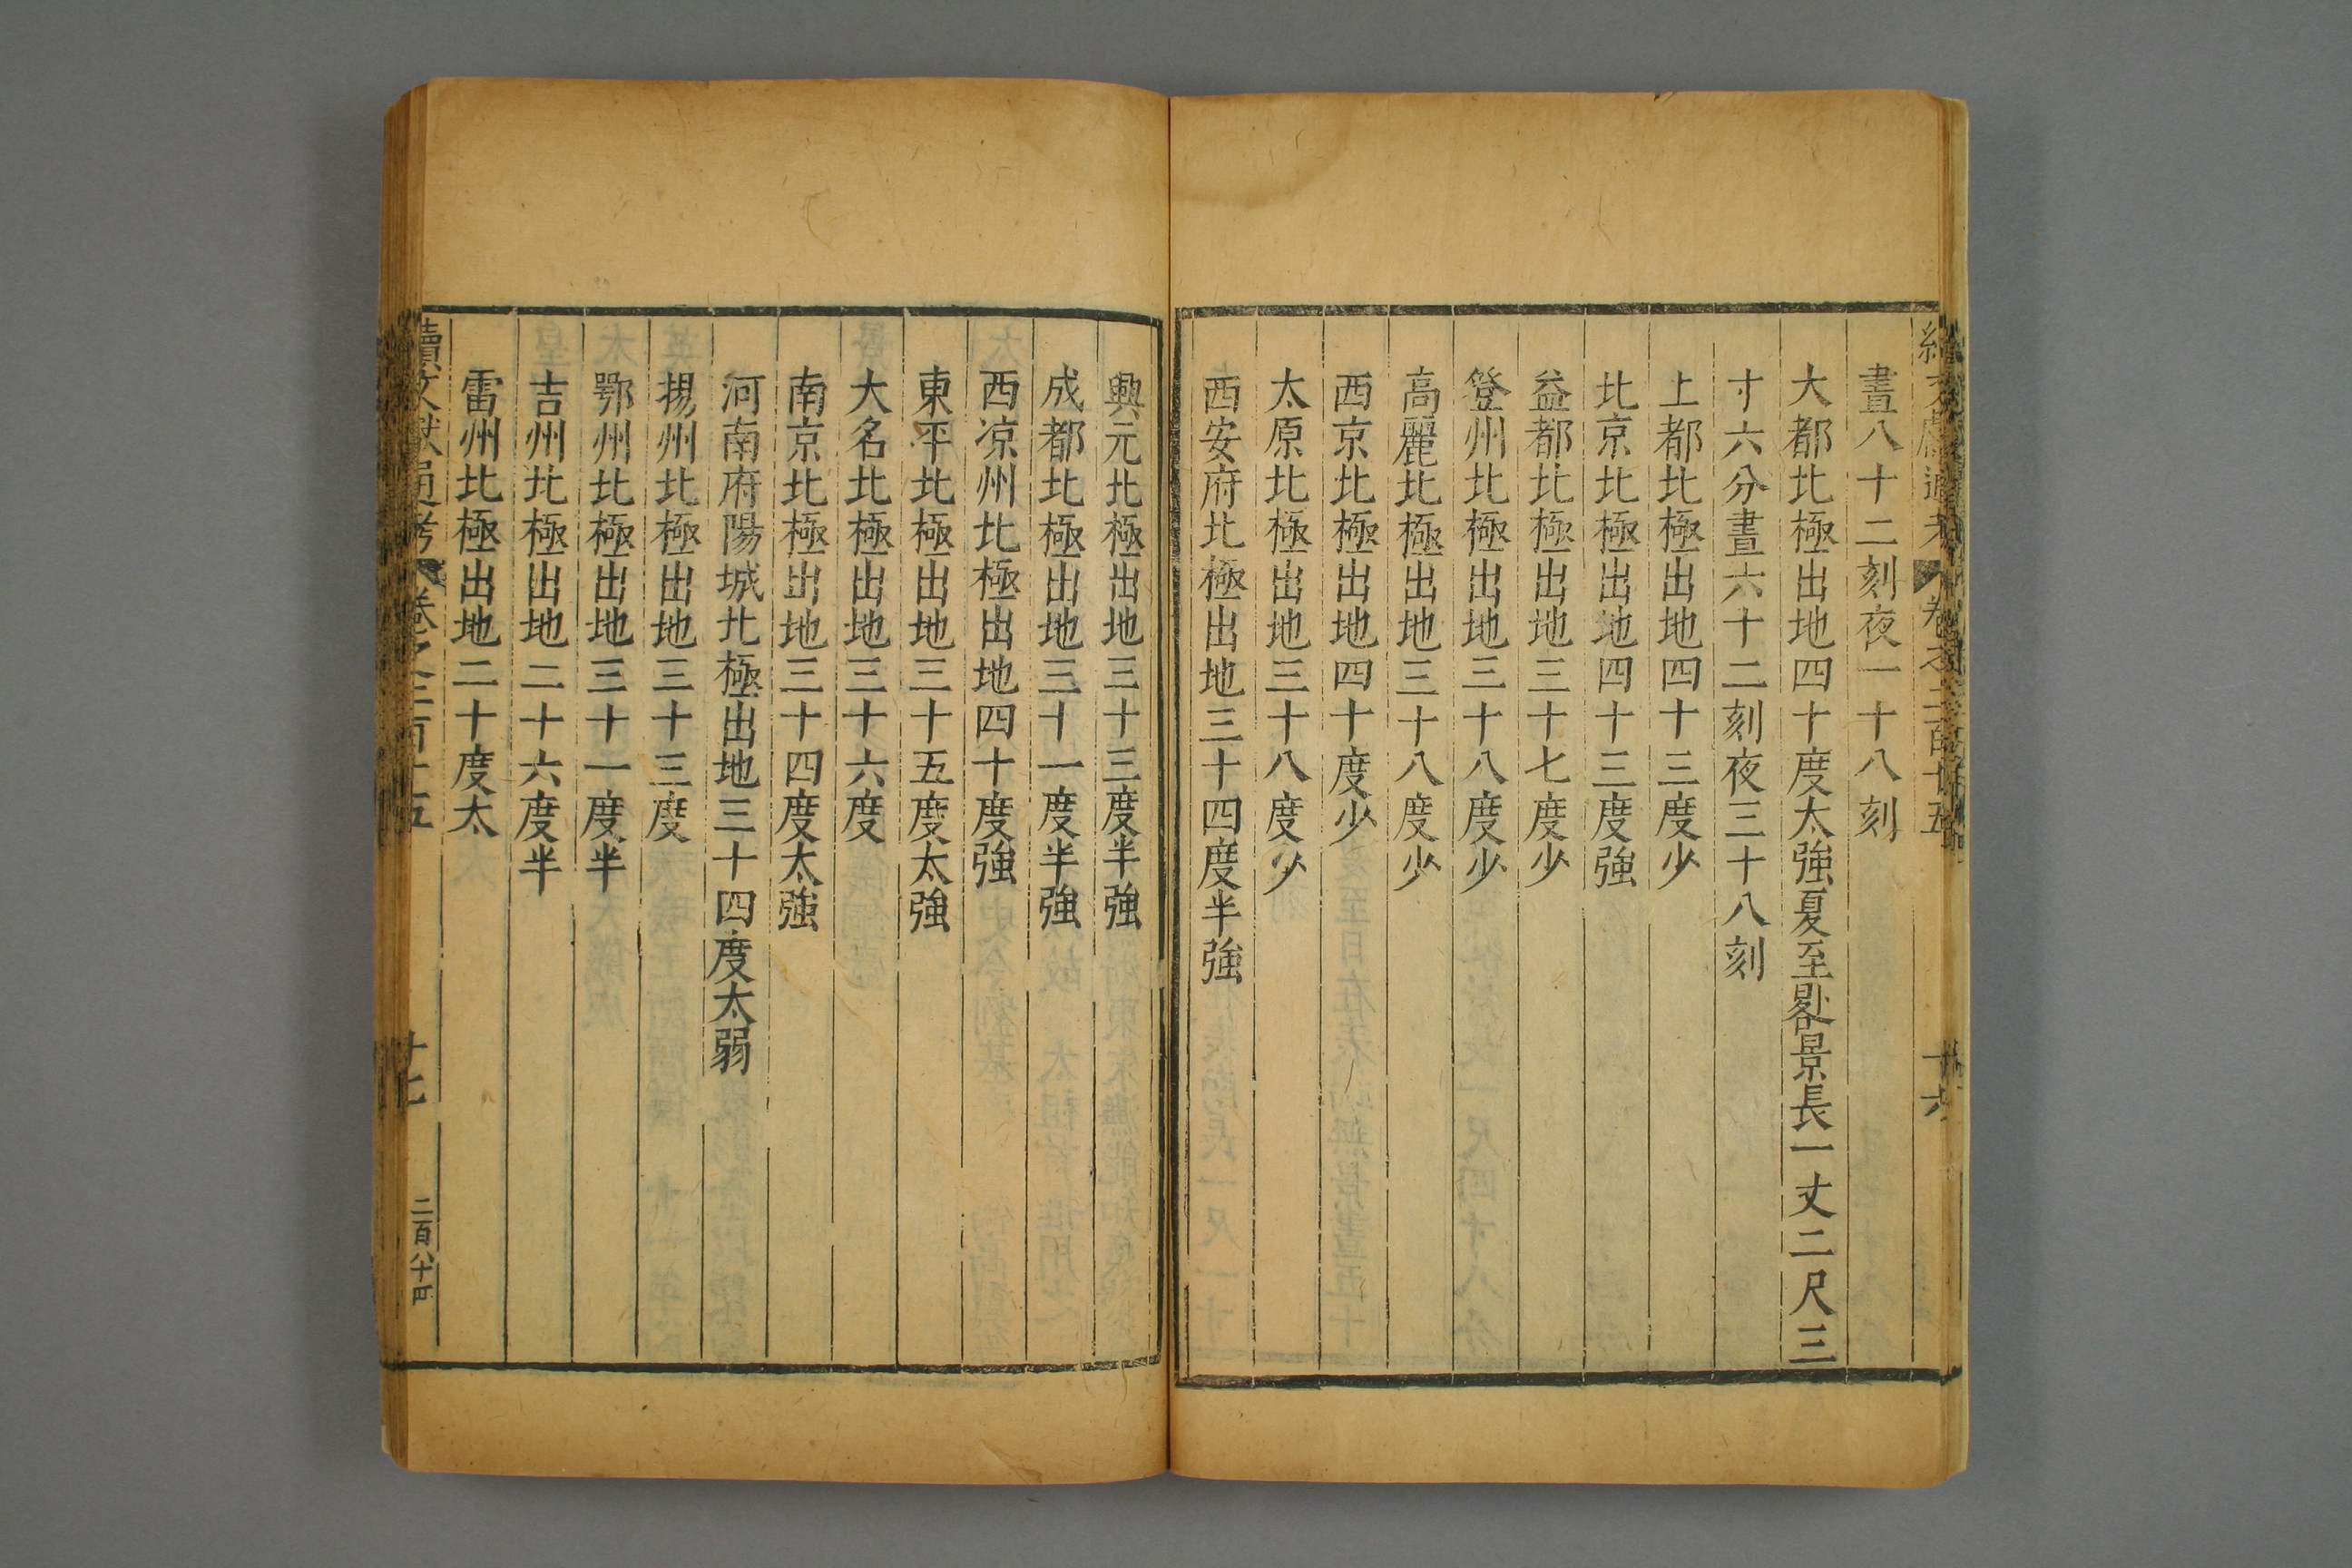 晝八十二刻夜一十八刻
大都北極出地四十度太強夏至晷景長一丈二尺三
寸六分晝六十二刻夜三十八刻
上都北極出地四十三度少
北京北極出地四十三度強
益都北極出地三十七度少
登州北極出地三十八度少
高麗北極出地三十八度少
西京北極出地四十度少
太原北極出地三十八度少
西安府北極出地三十四度半強
興元北極出地三十三度半強
成都北極出地三十一度半強
西凉州北極出地四十度強
東平北極出地三十五度太強
大名北極出地三十六度
南京北極出地三十四度太強
河南府陽城北極出地三十四度太弱
揚州北極出地三十三度
鄂州北極出地三十一度半
吉州北極出地二十六度半
雷州北極出地二十度太
續文獻通考 卷之二百十五 十七 二百八十四